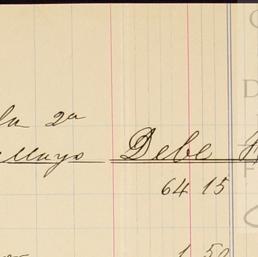 la 2a
Mayo Debe H
64 15
1 50